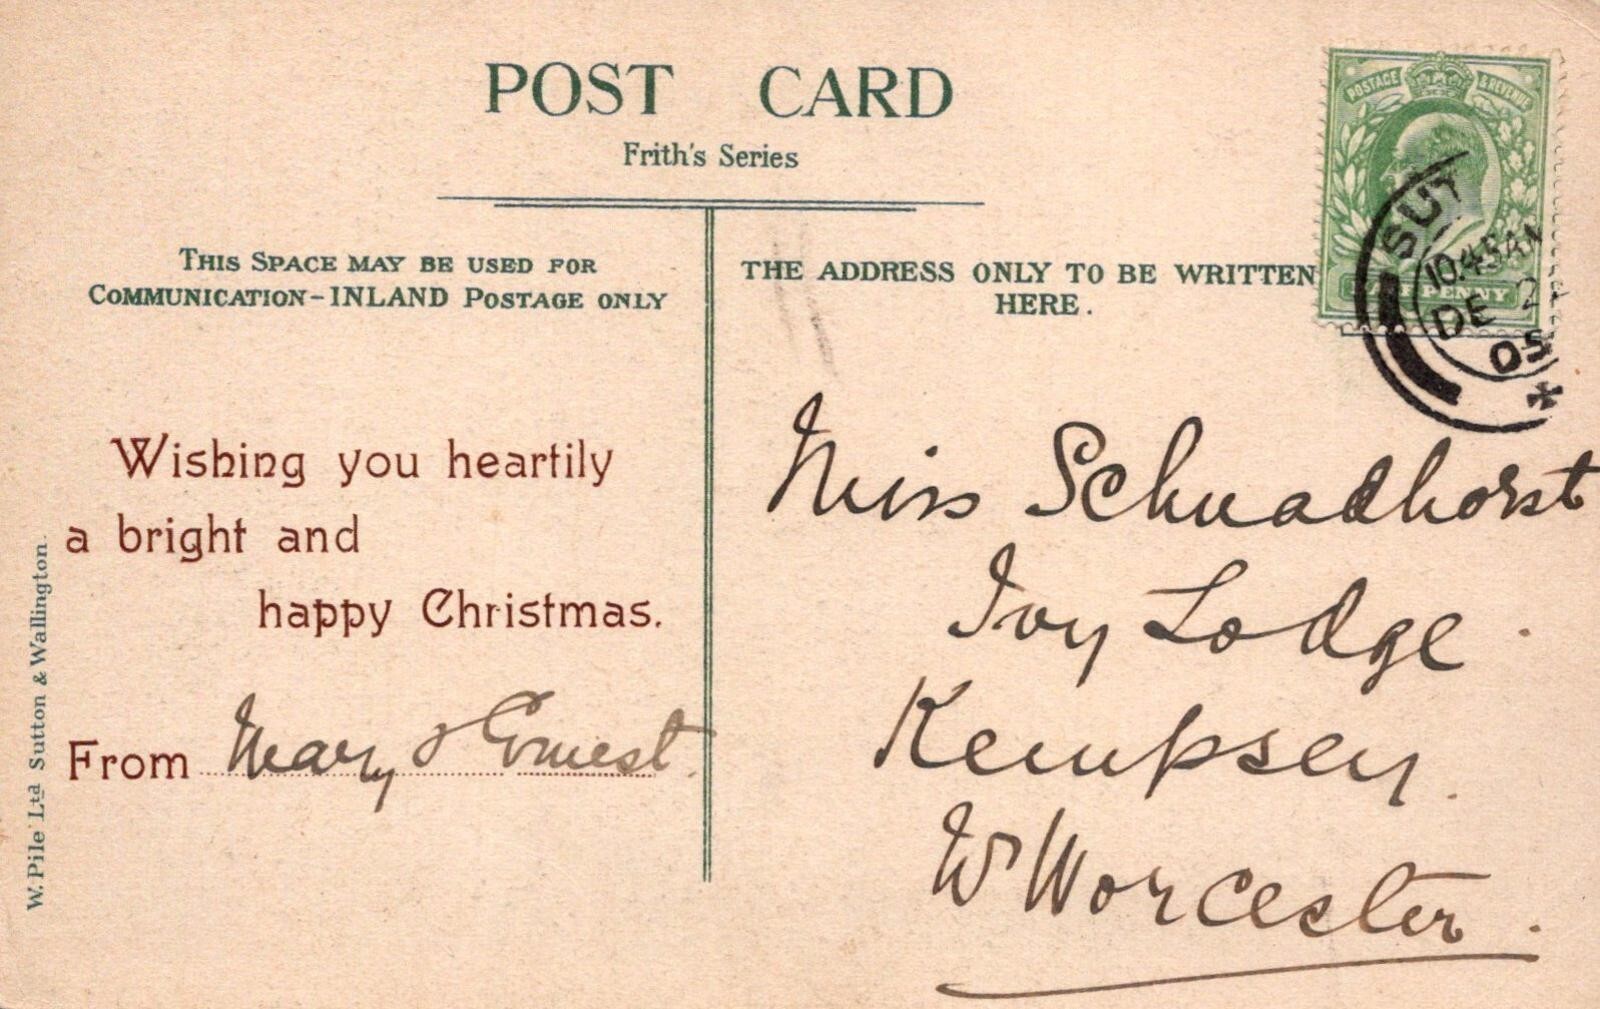 POST CARD
Frith's Series
THIS SPACE MAY BE USED FOR
COMMUNICATION-INLAND POSTAGE ONLY
THE ADDRESS ONLY TO BE WRITTEN
HERE.
POSTAGE & REVENUE
PENNY
SUT
10.45AM
DE 2
05
Wishing you heartily
a bright and
happy Christmas.
From Mary & Ernest.
W. Pile Ltd Sutton & Wallington.
Miss Schnadhorst
Ivy Lodge
Kempsey.
Nr Worcester.